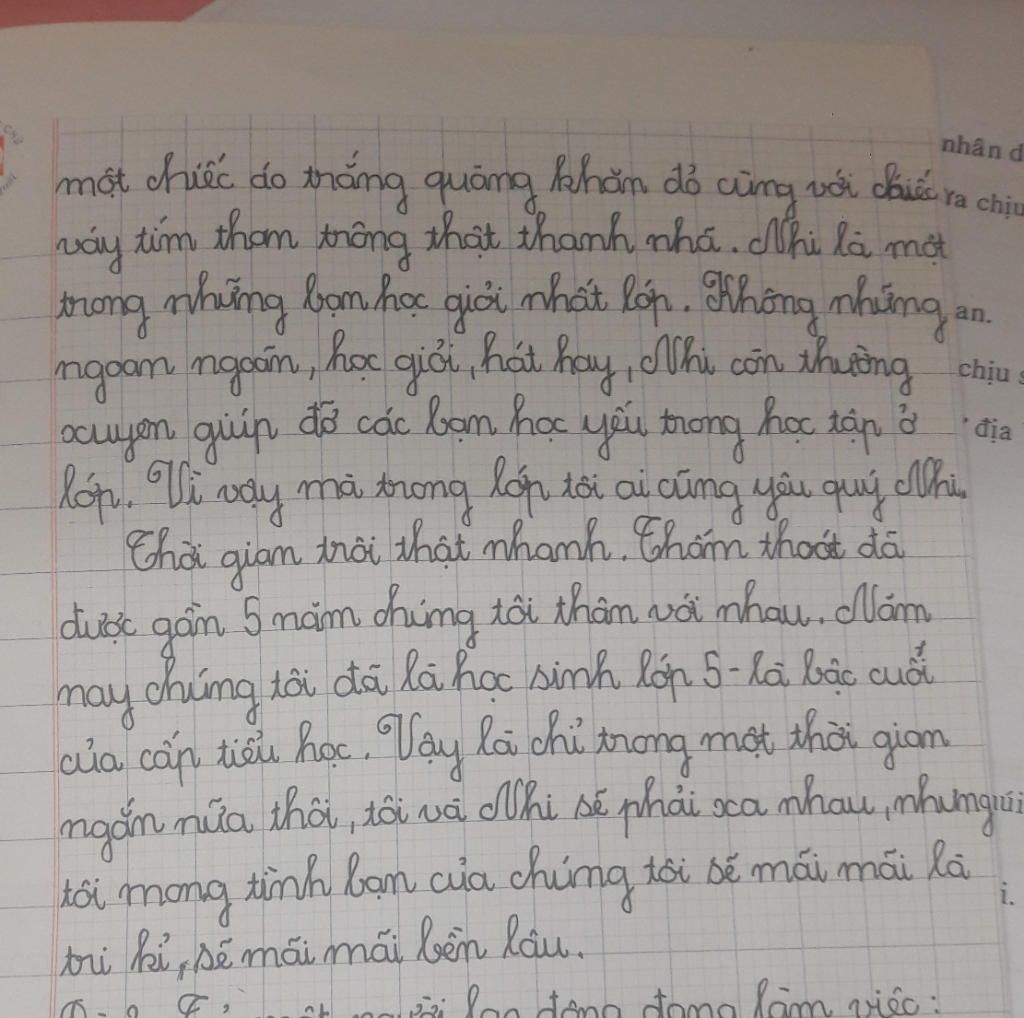 một chiếc áo trắng quàng khăn đỏ cùng với chiếc
váy tím than trông thật thanh nhã. Nhi là một
trong những bạn học giỏi nhất lớp. Không những
ngoan ngoãn, học giỏi, hát hay, Nhi còn thường
xuyên giúp đỡ các bạn học yếu trong học tập ở
lớp. Vì vậy mà trong lớp tôi ai cũng yêu quý Nhi.
Thời gian trôi thật nhanh. Thấm thoát đã
được gần 5 năm chúng tôi thân với nhau. Năm
nay chúng tôi đã là học sinh lớp 5-là bậc cuối
của cấp tiểu học. Vậy là chỉ trong một thời gian
ngắn nữa thôi, tôi và Nhi sẽ phải xa nhau, nhưng
tôi mong tình bạn của chúng tôi sẽ mãi mãi là
tri kỉ, sẽ mãi mãi bền lâu.
người lao động đang làm việc:
nhân d
ra chịu
an.
chịu s
địa
i.